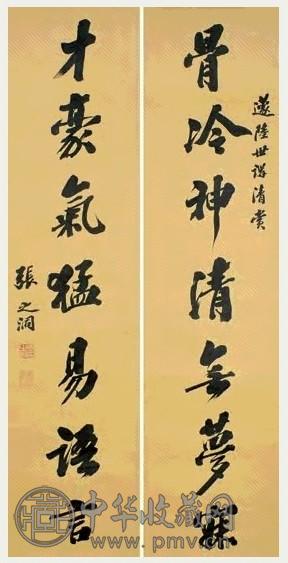 陸世講清賞
骨冷神清無夢寐
才豪氣猛易語言
張之洞
中华收藏网
www.pmv.c